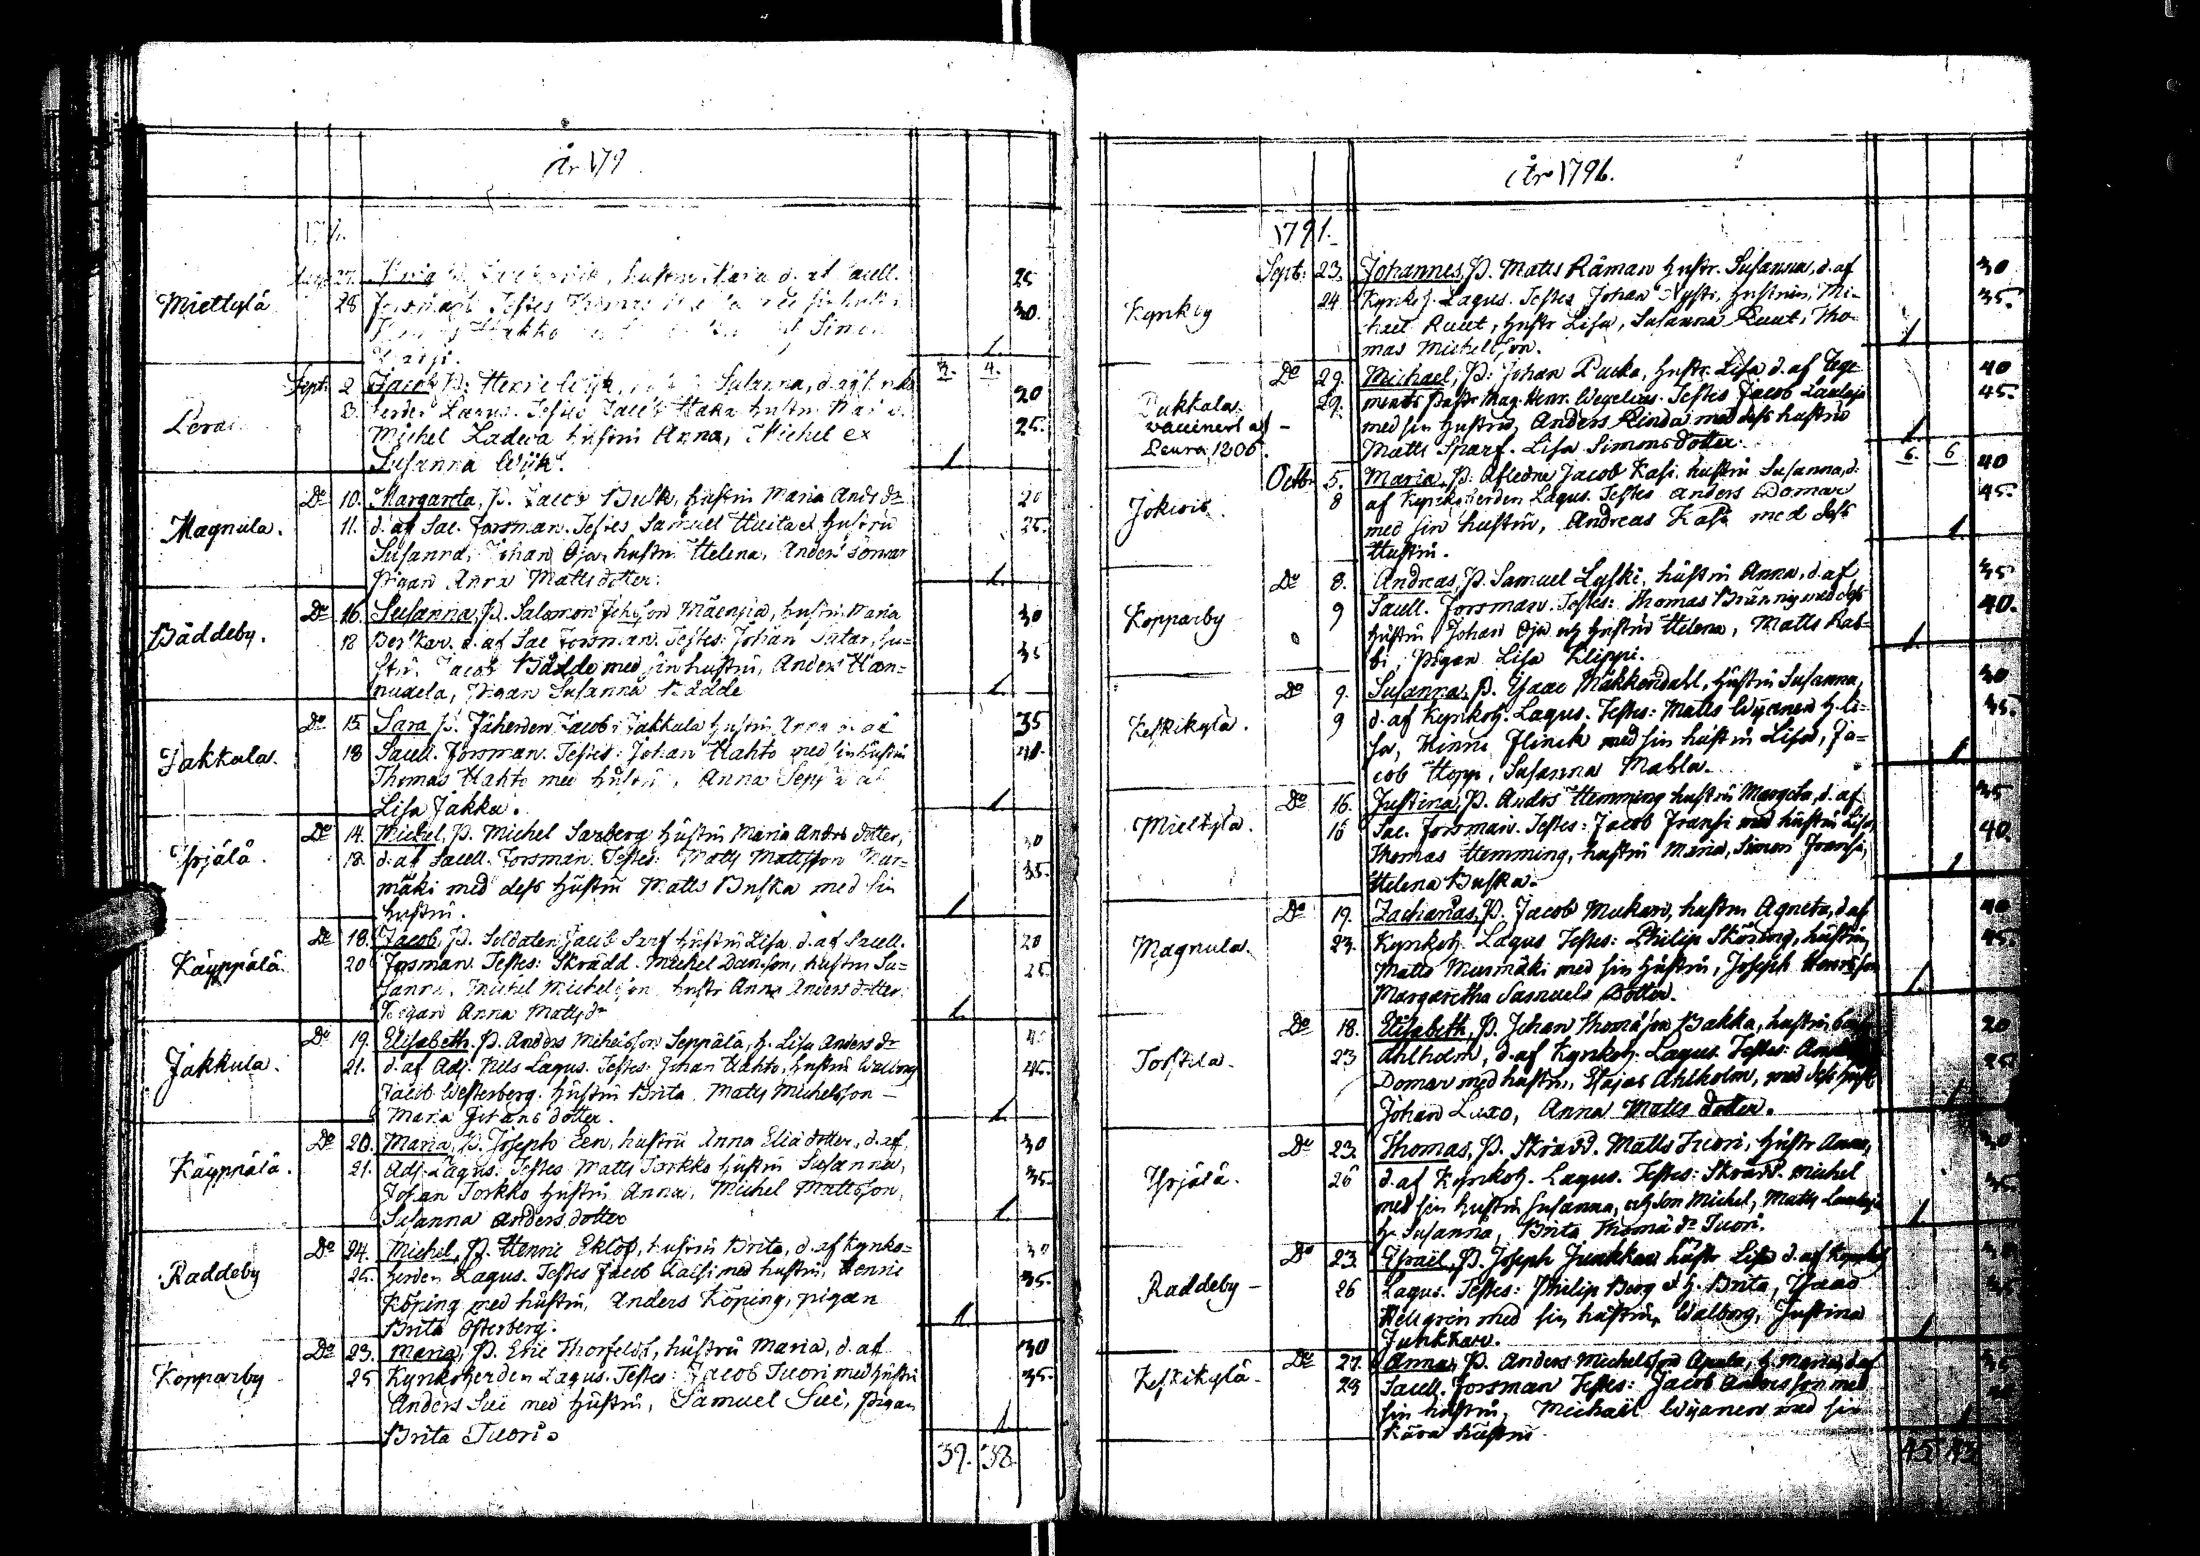 År 179
Miettylä
27. hustru Maria d. af Sacell.
28 Forsman. Testes Thomas
25
30.
1.
3. 4.
Sept: 2 Jacob, P: Henric Wijk, Susanna, d. af Kyrko
3. herden Lagus. Testes Jacob Haka hustru
Michel Ladwa hustru Anna, Michel ex
Susanna Wijk.
20
25.
1
Magnula.
Do 10. Margareta, P. Jacob Busk, hustru Maria Andsdr
11. d. af Sac. Forsman. Testes Samuel Huita et hustru
Susanna, Johan Oja, hustru Helena, Anders Domar
pigan Anna Matts dotter.
20
25.
1.
Bäddeby.
Do 16. Susanna, P. Salomon Mäenpää, hustru Maria
18 d. af Sac Forsman. Testes: Johan Satar, hu-
stru. Jacob Bädde med sin hustru, Anders Han-
nuxela, Pigan Susanna Bädde
30
35
1.
Jakkula.
Do 15. Sara P. Jacob Jakkula hustru Anna d. af
18 Sacell. Forsman. Testes: Johan Hahto med sin hustru
Thomas Hahto med hustru, Anna
Lisa Jakku.
35
40.
1
Yrjälä.
Do 14. Michel, P. Michel Sarberg hustru Maria Anders dotter,
18. d. af Sacell. Forsman. Testes: Matts Mattsson Mur-
mäki med dess hustru Matts Buska med sin
hustru.
30
35.
1
Käyppälä.
Do 18. Jacob, P. Soldaten Jacob Sarf hustru Lisa d. af Sacell.
20 Forsman. Testes: Skrädd. Michel Danison, hustru Su-
sanna. Michel Michelsson hustr Anna Anders dotter.
Pigan Anna Mattsdr
20
25
1.
Jakkula.
Do 19. Elisabeth. P. Anders Michelsson Seppälä, h. Lisa Andersdr
21. d. af Adj. Nils Lagus. Testes Johan Hahto, hustru Walborg
Jacob Westerberg. hustru Brita Matts Michelsson –
Maria Johans dotter.
45.
1.
Käyppälä.
Do 20. Maria, P. Joseph Een, hustru Anna Eliä dotter, d. af
21. Adj. Lagus. Testes Matts Torkko hustru Susanna,
Johan Torkko hustru Anna. Michel Mattsson,
Susanna Anders dotter
30
35.
1.
Raddeby
Do 24. Michel, P. Henric Eklöf, hustru Brita, d. af Kyrko-
25. herden Lagus. Testes Jacob med hustru, Henric
Köping med hustru, Anders Köping, pigan
Brita Österberg.
30
35.
1.
Kopparby
Do 23. Maria, P. Eric Thorfeldt, hustru Maria, d. af
25 Kyrkoherden Lagus. Testes: Jacob Tuori med hustru
Anders Sui med hustru, Samuel Sui, Pigan
Brita Tuori.
30
35.
1
39. 38.
År 1791.
1791.
Kyrkby
Sept: 23. Johannes, P. Matts Råman hustr. Susanna, d. af
24 Kyrkoh. Lagus. Testes Johan Nysti, hustrun, Mi-
chael Ruut, hustr Lisa, Susanna Ruut, Tho-
mas Michelsson.
30
35.
1
Pukkala
vaccinerd af
Leura 1806.
Do 29. Michael, P: Johan Pucka, hustr. Lisa d. af Rege-
29. ments Pastr Mag. Henr. Wegelius. Testes Jacob Laulaja
med sin hustru, Anders Rinda med dess hustru
Matts Sparf. Lisa Simonsdotter.
40
45.
1.
6. 6
Jokivis.
Octbr 5. Maria, P: Afledne Jacob Kasi hustru Susanna, d.
8 af Kyrkoherden Lagus. Testes Anders Domar
med sin hustru, Andreas Kasi med dess
Hustru.
40
45.
1.
Kopparby
Do 8. Andreas, P. Samuel Lyski, hustru Anna, d. af
9 Sacell. Forsman. Testes: Thomas Bränni med dess
hustru, Johan Oja och hustru Helena, Matts Rab-
bi, Pigan Lisa Klippi.
35
40.
1
Keskikylä.
Do 9. Susanna, P. Isaac Makkendahl, hustru Susanna,
9 d. af Kyrkoh. Lagus. Testes: Matts Wijanen h. Li-
sa, Hinric Flinck med sin hustru Lisa, Ja-
cob Hoppi, Susanna Mabla.
30
35.
1
Miettylä.
Do 16. Justina, P. Andrs Hemming hustru Margeta, d. af
16 Sac. Forsman. Testes: Jacob Fransi med hustru Lisa
Thomas Hemming, hustru Maria, Simon Fransi,
Helena Buska.
35
40.
1
Magnula.
Do 19. Zacharias, P. Jacob Mukari, hustru Agneta, d. af
23. Kyrkoh. Lagus Testes: Philip Sköring, hustru,
Matts Murmäki med sin hustru, Joseph Henrisson
Margaretha Samuels Dotter.
40
45.
1.
Torkila.
Do 18. Elisabeth, P. Johan Thomasson Bakka, hustru
23 Ahlholm, d. af Kyrkoh. Lagus. Testes:
Domar med hustru, Esajas Ahlholm, med dess hustr
Johan Luxo, Anna Matts dotter.
20
25
1
Yrjälä.
Do 23. Thomas, P. Skrädd. Matts Tuori, hustr Anna,
26 d. af Kyrkoh. Lagus. Testes: Skrädd. Michel
med sin hustru Susanna, och son Michel, Matts Laulaja
h. Susanna, Brita Thomædr Tuori.
30
35.
1.
Raddeby –
Do 23. Israël, P. Joseph Junkkari hustr Lisa d. af Kyrkoh
26 Lagus. Testes: Philip Borg & h. Brita, Isaac
Hellgren med sin hustru, Walborg, Justina
Junkkari.
35
1
Keskikylä.
Do 27. Anna, P. Anders Michelsson Apula, h. Maria, d. af
29 Sacell. Forsman Testes: Jacob Andersson med
sin hustru, Michael Wijanen med sin
kära hustru
1
45. 43